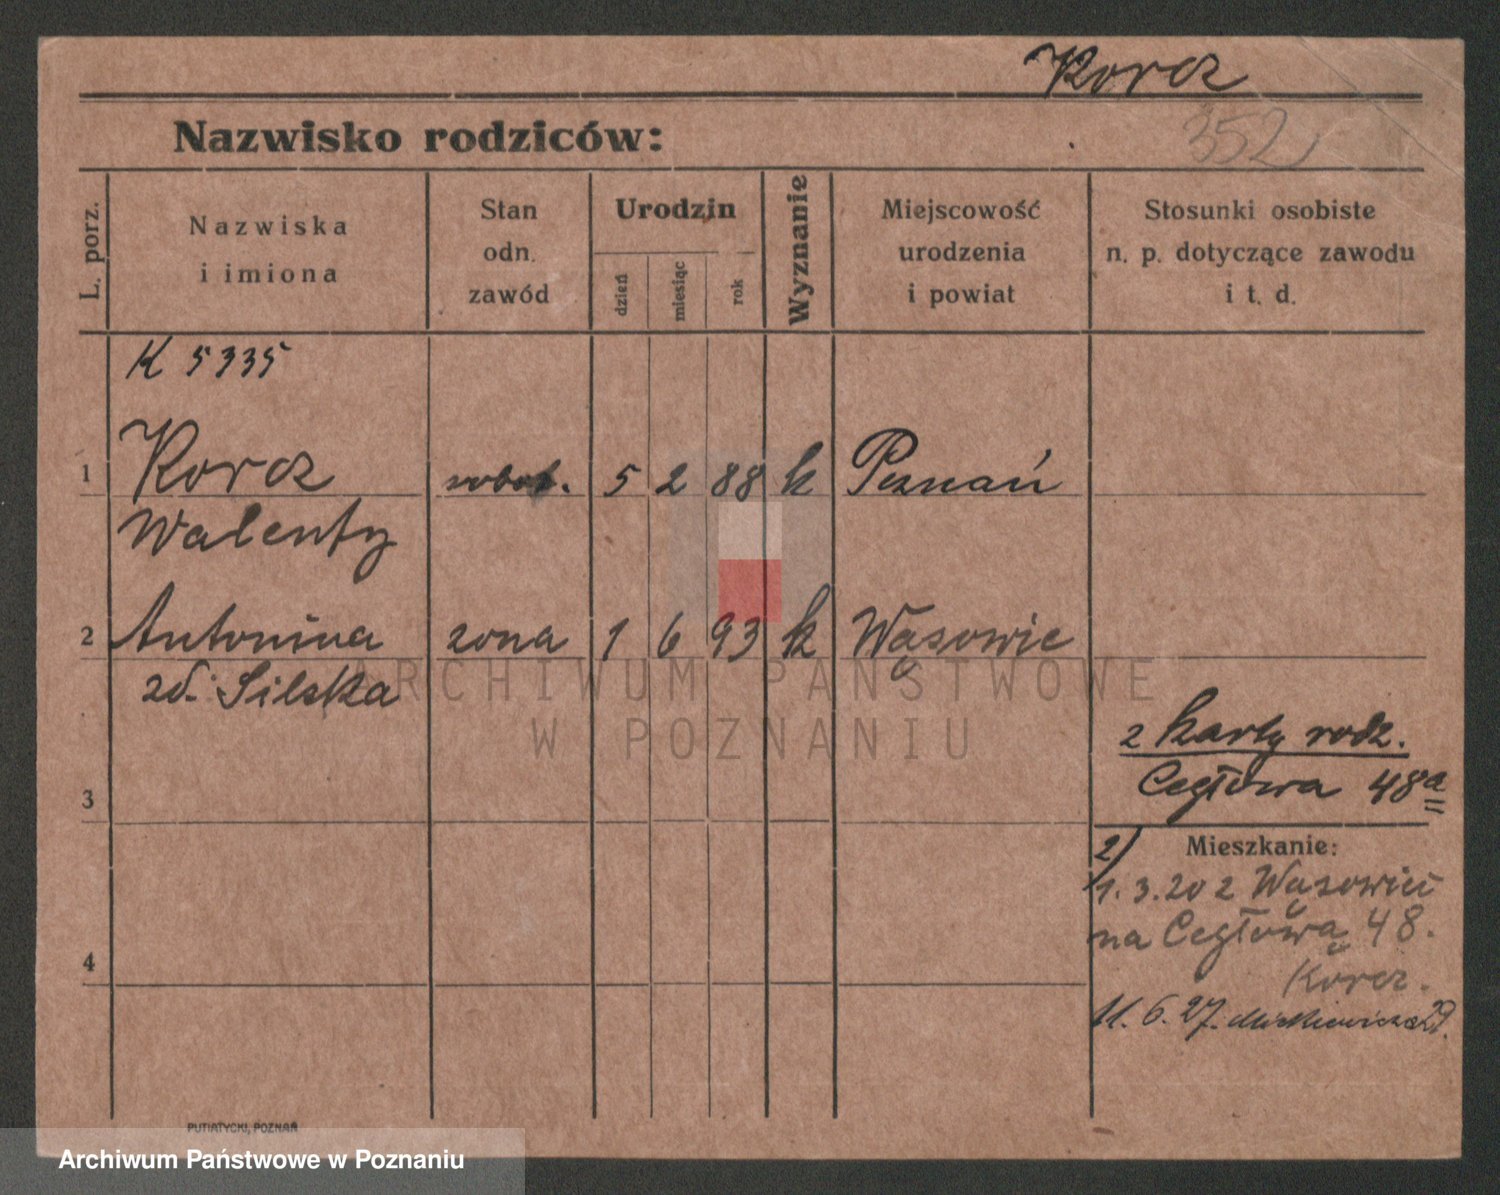 Korcz
Nazwisko rodziców:
352
L. porz.
Nazwiska
i imiona
Stan
odn.
zawód
Urodzin
dzień
miesiąc
rok
Wyznanie
Miejscowość
urodzenia
i powiat
Stosunki osobiste
n. p. dotyczące zawodu
i t. d.
K 5335
1 Korcz robot. 5 2 88 k Poznań
Walenty
2 Antonina żona 1 6 93 k Wąsowie
zd. Silska
ARCHIWUM PAŃSTWOWE
W POZNANIU
z karty rodz.
Cegłowa 48a
3
2) Mieszkanie:
1.3.20 z Wąsowic
na Cegłową 48.
4
Korcz.
11.6.27. Mickiewicza 29.
PUTIATYCKI, POZNAŃ
Archiwum Państwowe w Poznaniu